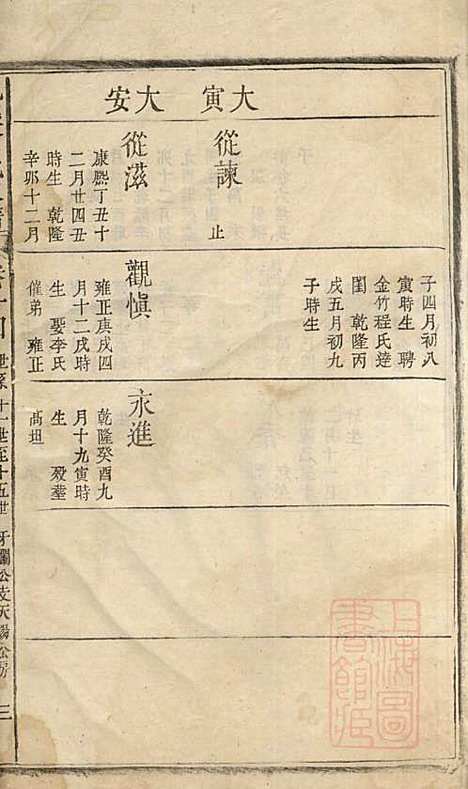 大寅
大安
從諫
止
從滋
康熙丁丑十
二月廿四丑
時生 乾隆
辛卯十二月
子四月初八
寅時生 聘
金竹程氏達
閨 乾隆丙
戌五月初九
子時生
觀慎
雍正庚戌四
月十二戌時
生 娶李氏
催弟 雍正
永進
乾隆癸酉九
月十九寅時
生 歿葬
高坦
卷十四 世系 十一世至十五世 牙闌公支天錫公房 三
上海圖書館藏